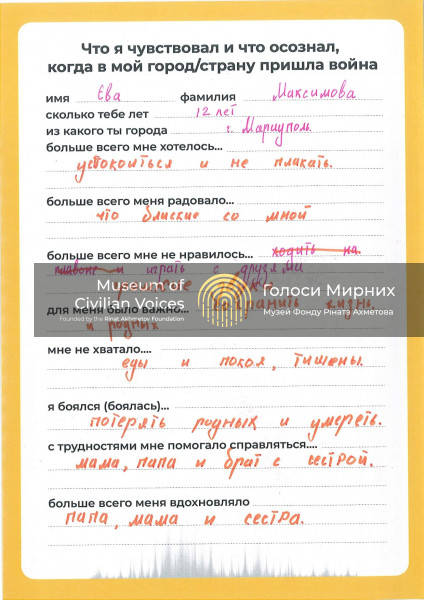 Что я чувствовал и что осознал,
когда в мой город/страну пришла война
имя Ева фамилия Максимова
сколько тебе лет 12 лет
из какого ты города г. Мариуполь
больше всего мне хотелось...
успокоиться и не плакать.
больше всего меня радовало...
что блиские со мной
больше всего мне не нравилось... ходить на
и играть с друзями
Museum of
Civilian Voices
Founded by the Rinat Akhmetov Foundation
Голоси Мирних
Музей Фонду Ріната Ахметова
для меня было важно... сохранить жизнь.
и родных
мне не хватало....
еды и покоя, тишены.
я боялся (боялась)...
потерять родных и умереть.
с трудностями мне помогало справляться....
мама, папа и брат с сестрой.
больше всего меня вдохновляло
папа, мама и сестра.